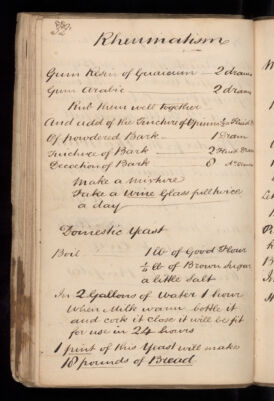 Rheumatism
Gum Resin of Guaicum — 2 drams
Gum Arabic — 2 drams
Rub them well together
And add of the Tincture of Opium
Of powdered Bark — 1 Dram
Tincture of Bark — 2 Fluid Dram
Decoction of Bark — 8
Make a mixture
Take a Wine Glass full twice
a day
Domestic Yeast
Boil 1 lb of Good Flour
¼ lb of Brown Sugar
a little Salt
In 2 Gallons of Water 1 hour
When Milk warm bottle it
and cork it close it will be fit
for use in 24 hours
1 pint of this Yeast will make
18 pounds of Bread